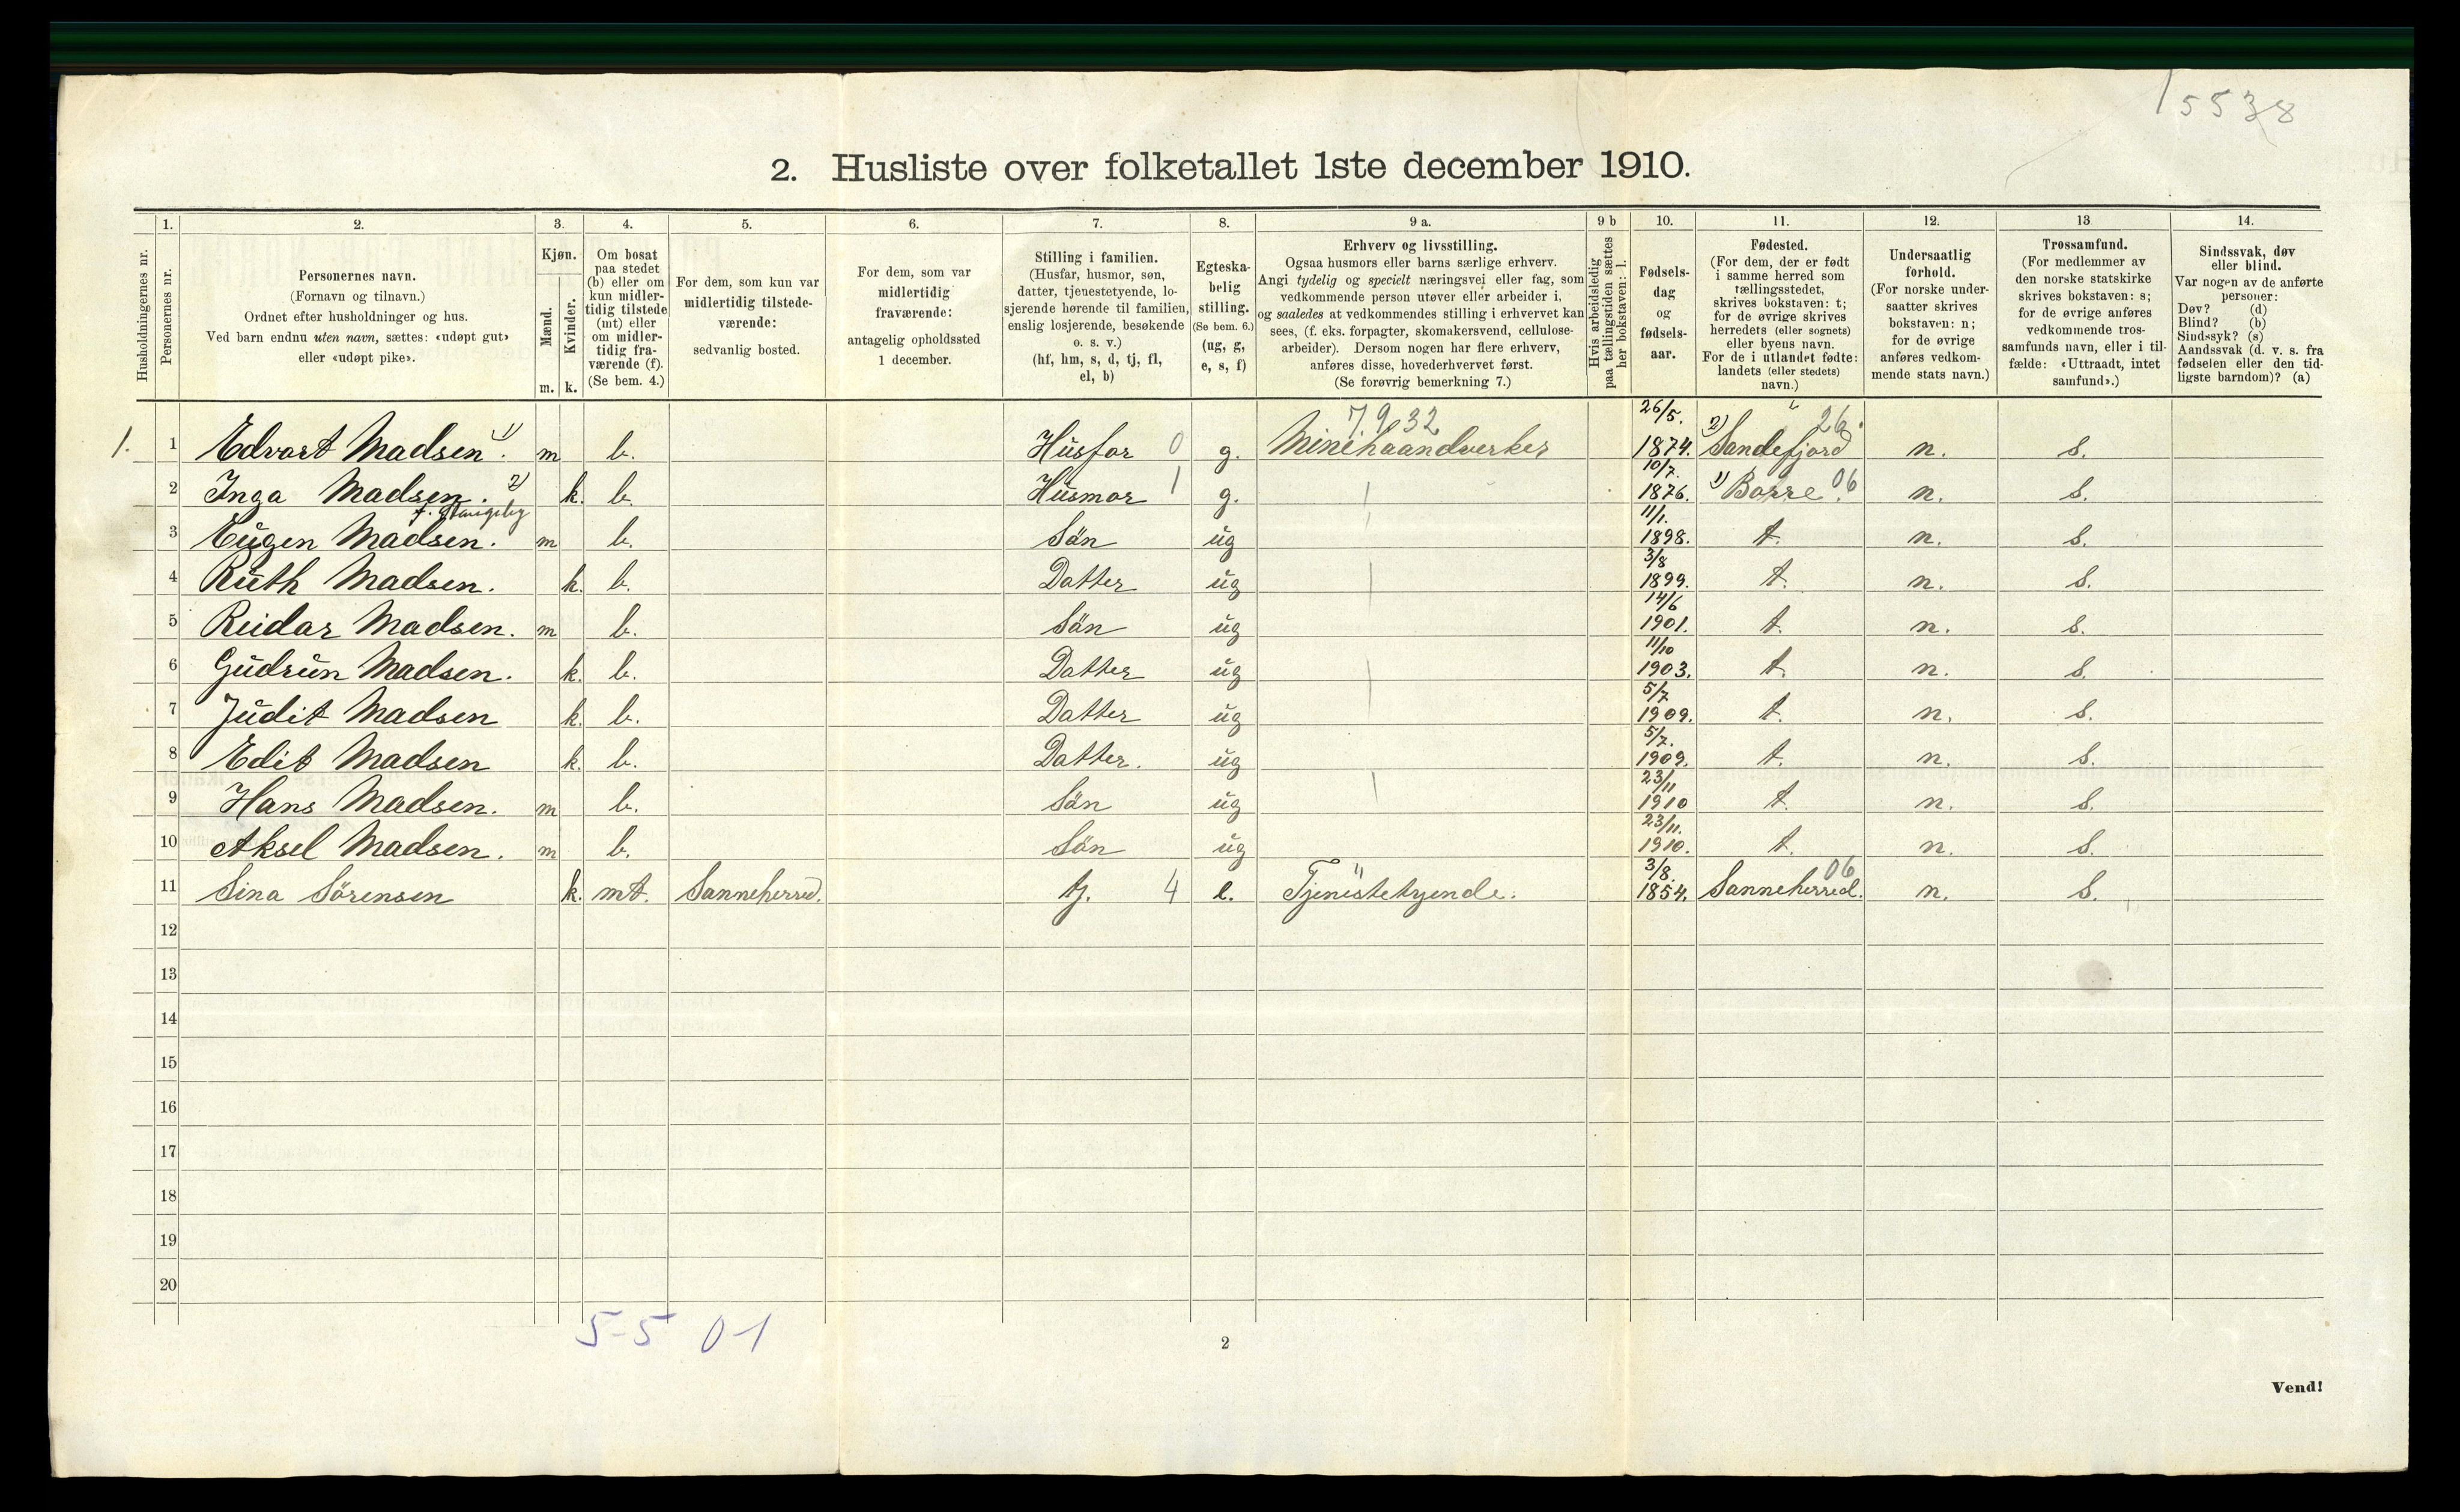 15538
2. Husliste over folketallet 1ste december 1910.
Husholdningernes nr.
1. Personernes nr.
2. Personernes navn.
(Fornavn og tilnavn.)
Ordnet efter husholdninger og hus.
Ved barn endnu uten navn, sættes: «udøpt gut»
eller «udøpt pike».
3. Kjøn.
Mænd. m.
Kvinder. k.
4. Om bosat
paa stedet
(b) eller om
kun midler-
tidig tilstede
(mt) eller
om midler-
tidig fra-
værende (f).
(Se bem. 4.)
5. For dem, som kun var
midlertidig tilstede-
værende:
sedvanlig bosted.
6. For dem, som var
midlertidig
fraværende:
antagelig opholdssted
1 december.
7. Stilling i familien.
(Husfar, husmor, søn,
datter, tjenestetyende, lo-
sjerende hørende til familien,
enslig losjerende, besøkende
o. s. v.)
(hf, hm, s, d, tj, fl,
el, b)
8. Egteska-
belig
stilling.
(Se bem. 6.)
(ug, g,
e, s, f)
9 a. Erhverv og livsstilling.
Ogsaa husmors eller barns særlige erhverv.
Angi tydelig og specielt næringsvei eller fag, som
vedkommende person utøver eller arbeider i,
og saaledes at vedkommendes stilling i erhvervet kan
sees, (f. eks. forpagter, skomakersvend, cellulose-
arbeider). Dersom nogen har flere erhverv,
anføres disse, hovederhvervet først.
(Se forøvrig bemerkning 7.)
9 b Hvis arbeidsledig
paa tællingstiden sættes
her bokstaven: l.
10. Fødsels-
dag
og
fødsels-
aar.
11. Fødested.
(For dem, der er født
i samme herred som
tællingsstedet,
skrives bokstaven: t;
for de øvrige skrives
herredets (eller sognets)
eller byens navn.
For de i utlandet fødte:
landets (eller stedets)
navn.)
12. Undersaatlig
forhold.
(For norske under-
saatter skrives
bokstaven: n;
for de øvrige
anføres vedkom-
mende stats navn.)
13 Trossamfund.
(For medlemmer av
den norske statskirke
skrives bokstaven: s;
for de øvrige anføres
vedkommende tros-
samfunds navn, eller i til-
fælde: «Uttraadt, intet
samfund».)
14. Sindssvak, døv
eller blind.
Var nogen av de anførte
personer:
Døv? (d)
Blind? (b)
Sindssyk? (s)
Aandssvak (d. v. s. fra
fødselen eller den tid-
ligste barndom)? (a)
7.9.32 26/5. 26.
1. 1 Edvart Madsen 1). m b. Husfar 0 g. Minehaandverker 1874. 2) Sandefjord n. s.
2 Inga Madsen. 2) k. b. Husmor 1 g. 10/7. 1876. 1) Borre. 06 n. s.
3 Eugen Madsen. m b. Sön ug 11/1. 1898. t. n. s.
4 Ruth Madsen. k. b. Datter ug 3/8 1899. t. n. s.
5 Reidar Madsen. m b. Sön ug 14/6 1901. t. n. s.
6 Gudrun Madsen. k. b. Datter ug 11/10 1903. t. n. s.
7 Judit Madsen k. b. Datter ug 5/7 1909. t. n. s.
8 Edit Madsen k. b. Datter. ug 5/7. 1909. t. n. s.
9 Hans Madsen. m b. Sön ug 23/11 1910 t. n. s.
10 Aksel Madsen. m b. Sön ug 23/11. 1910. t. n. s.
11 Sina Sörensen k. mt. Sanneherred. tj. 4 e. Tjenestetyende. 3/8. 1854. Sanneherred. 06 n. s.
12
13
14
15
16
17
18
19
20
5-5 01
2
Vend!